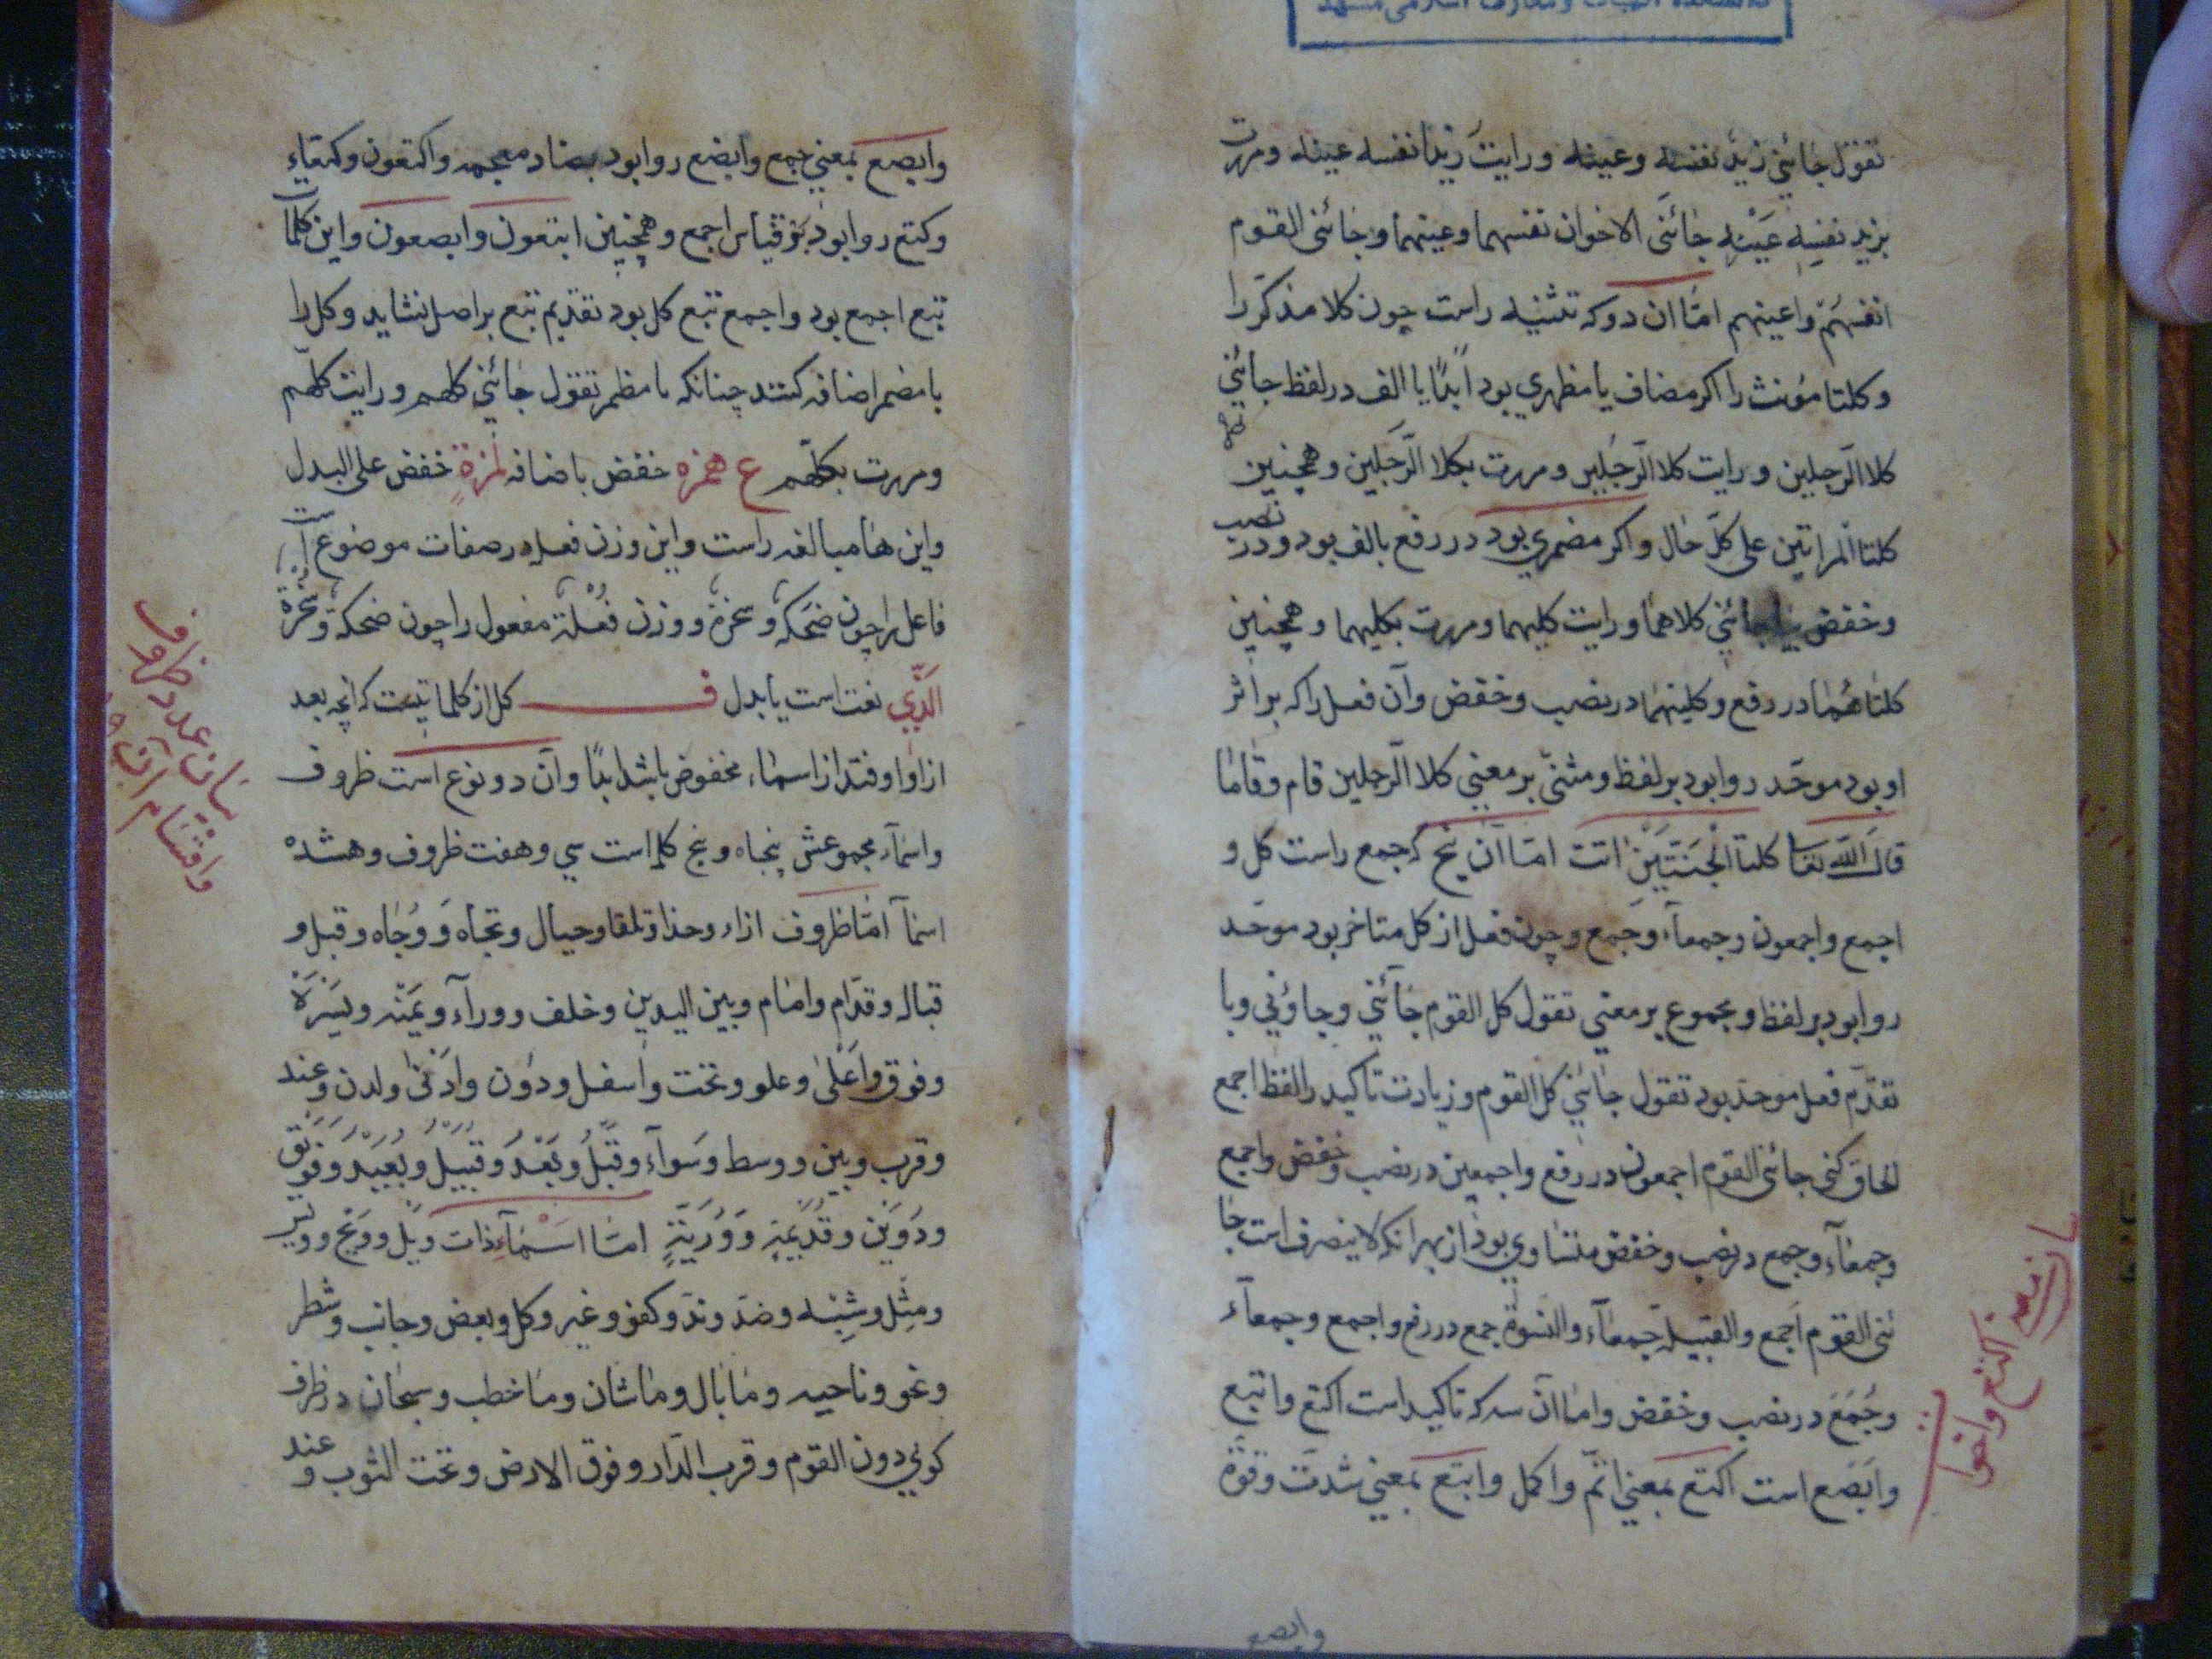 دانشکده الهیات و معارف اسلامی مشهد
تقول جائنی زید نفسه وعینه ورایت زیدا نفسه عینه ومررت
بزید نفسه عینه جائنی الاخوان نفسهما وعینهما وجائنی القوم
انفسهم واعینهم امّا ان دو که تثنیه راست چون کلا مذکر را
وکلتا مؤنث را اکر مضاف یا مظهری بود ابدًا با الف در لفظ جائنی
کلا الرّجلین ورایت کلا الرّجلین ومررت بکلا الرّجلین وهمچنین
کلتا المراتین علی کلّ حال واکر مضمری بود در رفع بالف بود ودر نصب
وخفض بیا جائنی کلاهما ورایت کلیهما ومررت بکلیهما وهمچنین
کلتاهما در رفع وکلیتهما در نصب وخفض وآن فعل را که بر اثر
او بود موحّد روا بود بر لفظ ومثنّی بر معنی کلا الرّجلین قام وقاما
قال الله تعا کلتا الْجَنَتَیَنْ اتت امّا آن پنج که جمع راست کل و
اجمع واجمعون وجمعآء وجُمع وچون فعل از کل متاخر بود موحّد
روا بود بر لفظ ومجموع بر معنی تقول کل القوم جآئنی وجاؤنی وبا
تقدّم فعل موحد بود تقول جائنی کل القوم وزیادت تاکید را لفظ اجمع
الحاق کنی جائنی القوم اجمعون در رفع واجمعین در نصب وخفض واجمع
وجمعآء وجمع در نصب وخفض متساوی بود از بهر انکه لا ینصرف است جا
ئنی القوم اجمع والقبیلة جمعآء والنسوة جمع در رفع واجمع وجمعآء
وجُمَعَ در نصب وخفض واما آن سه که تاکید است اکتع وابتع
وابَصَع است اکتع بمعنی اتمّ واکمل وابتع بمعنی شدّت وقوّة
وابصع
بیان اکتع واخوا
وابصع بمعنی جمع وابضع روا بود بضاد معجمه واکتعون وکتعاء
وکتع روا بود بر قیاس اجمع وهمچنین ابتعون وابصعون واین کلمات
تبع اجمع بود واجمع تبع کل بود تقدیم تبع بر اصل نشاید وکل را
با مضمر اضافه کنند چنانکه با مظهر تقول جائنی کلهم ورایت کلّهم
ومررت بکلّهم ع همزه خفض باضافه لمزةٍ خفض علی البدل
واین ها مبالغه راست واین وزن فعله در صفات موضوع است
فاعل را چون ضحَکه وسخرة ووزن فعْلة مفعول را چون ضحکة وسخْرة
الّذی نعت است یا بدل ف کل از کلماتیست که آنچه بعد
از او اوفتد از اسماء مخفوض باشد ابدًا وآن دو نوع است ظروف
واسمآء مجموعش پنجاه وپنج کلمه است سی وهفت ظروف وهشده
اسمآ امّا ظروف ازاء وحذا وتلقا وحیال وتجاه وَوُجاه وقبل و
قبال وقدّام وامام وبین الیدین وخلف وورآء ویَمَنْه ویَسَرَة
وفوق واعَلیٰ وعلو وتحت واسفل ودوُن وادَنیٰ ولدن وعند
وقرب وبین ووسط وسَوآء وقَبْلُ وبَعْدُ وقُبَیْل وبُعَیْد وفُوَیْق
ودُوَیَنْ وقُدَیْدیمَة وَوُرَیّةٍ امّا اسْمَآء ذات ویَل وویَح وویر
ومِثِل وشِبْه وضدّ وندّ وکفو وغیر وکل وبعض وجانب وشطر
ونحو وناحیه وما بال وما شان وما خطب وسبحان در ظرف
کوئی دون القوم وقرب الدّار وفوق الارض وتحت الثوب وعند
بیان عدد ظروف
واقسام آن